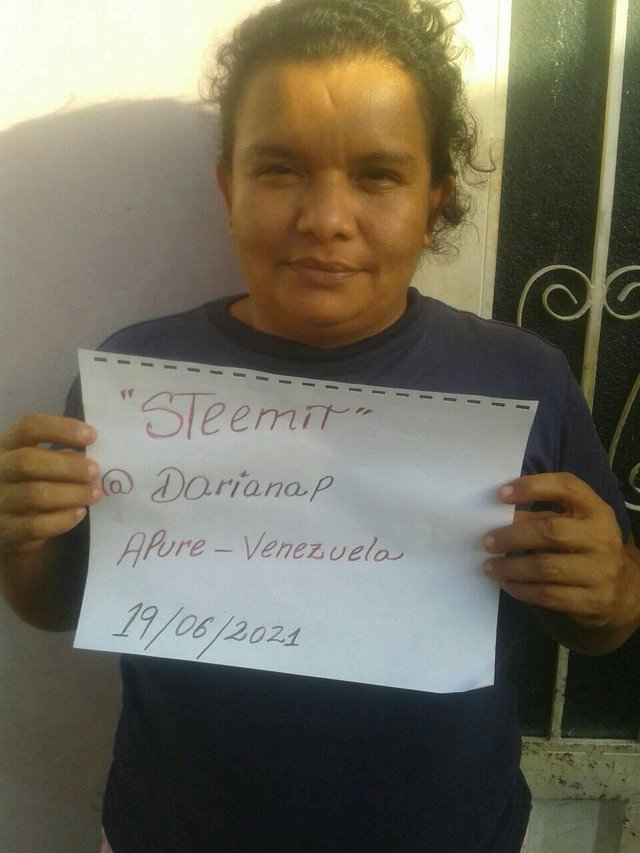 "STeemiT"
@ Dariana P
APure - Venezuela
19/06/2021